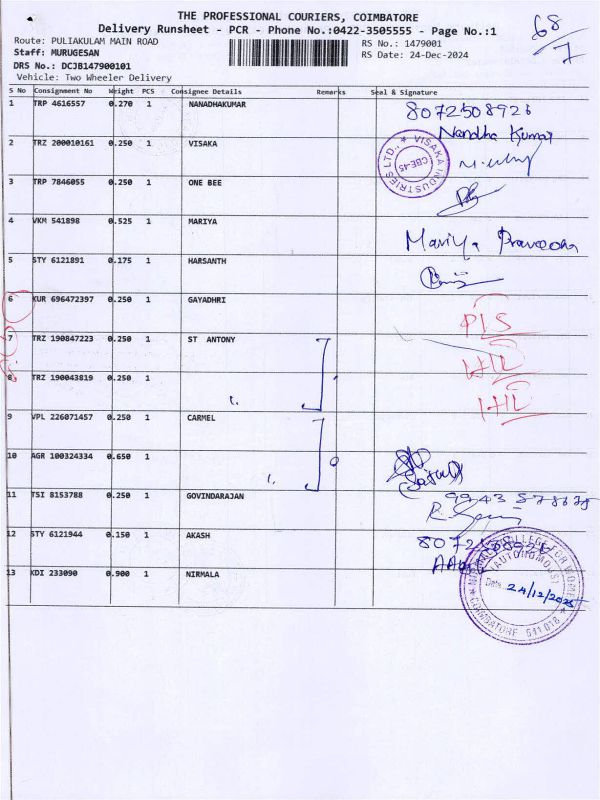 THE PROFESSIONAL COURIERS, COIMBATORE
Delivery Runsheet - PCR - Phone No.:0422-3505555 - Page No.:1
68/7
Route: PULIAKULAM MAIN ROAD
RS No.: 1479001
Staff: MURUGESAN
RS Date: 24-Dec-2024
DRS No.: DCJB147900101
Vehicle: Two Wheeler Delivery
S No Consignment No Weight PCS Consignee Details Remarks Seal & Signature
1 TRP 4616557 0.270 1 NANADHAKUMAR 8072508926
Nandha Kumar
2 TRZ 200010161 0.250 1 VISAKA
VISAKA INDUSTRIES LTD., CBE-45
3 TRP 7846055 0.250 1 ONE BEE
4 VKM 541898 0.525 1 MARIYA Mariya Praveena
5 STY 6121891 0.175 1 HARSANTH
6 KUR 696472397 0.250 1 GAYADHRI
7 TRZ 190847223 0.250 1 ST ANTONY
8 TRZ 190043819 0.250 1
9 VPL 226071457 0.250 1 CARMEL
10 AGR 100324334 0.650 1
11 TSI 8153788 0.250 1 GOVINDARAJAN
12 STY 6121944 0.150 1 AKASH
13 KDI 233090 0.900 1 NIRMALA
COLLEGE FOR WOMEN
(AUTONOMOUS)
Date: 24/12/2025
COIMBATORE 641 018